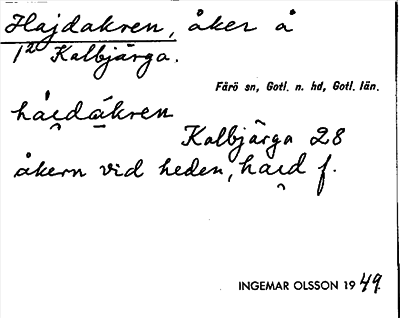 Hajdakren, åker å
1²⁰ Kalbjärga.
Fårö sn, Gotl. n. hd, Gotl. län.
hàɪdákren
Kalbjärga 28
åkern vid heden, haɪd f.
INGEMAR OLSSON 1949